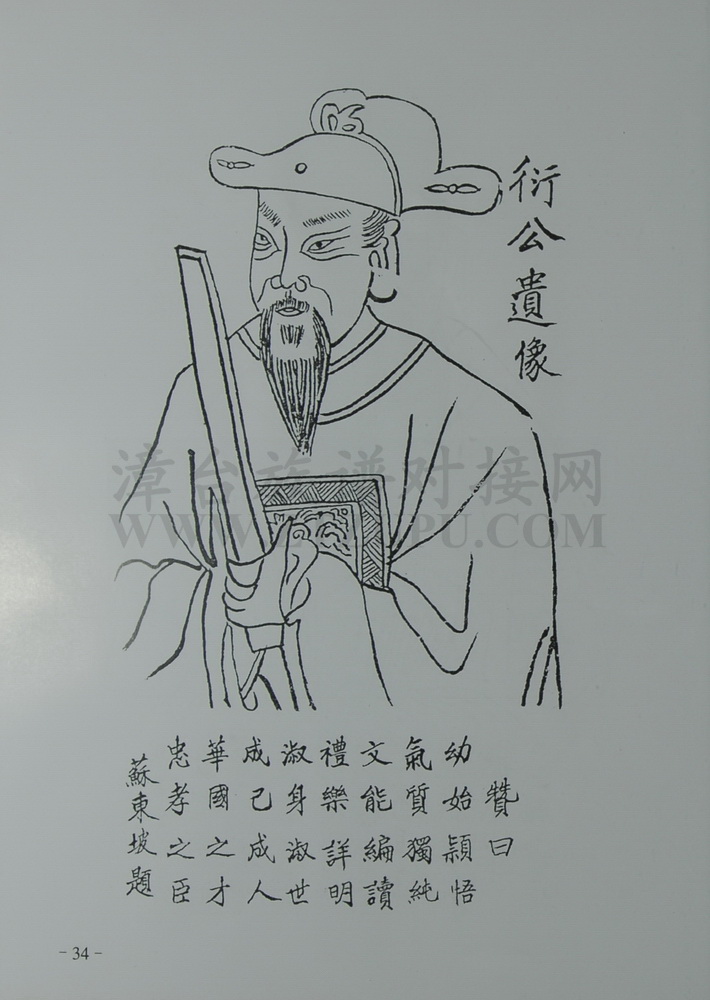 衍公遺像
漳台族谱对接网
贊曰
幼始穎悟
氣質獨純
文能編讀
禮樂詳明
淑身淑世
成己成人
華國之才
忠孝之臣
蘇東坡題
- 34 -